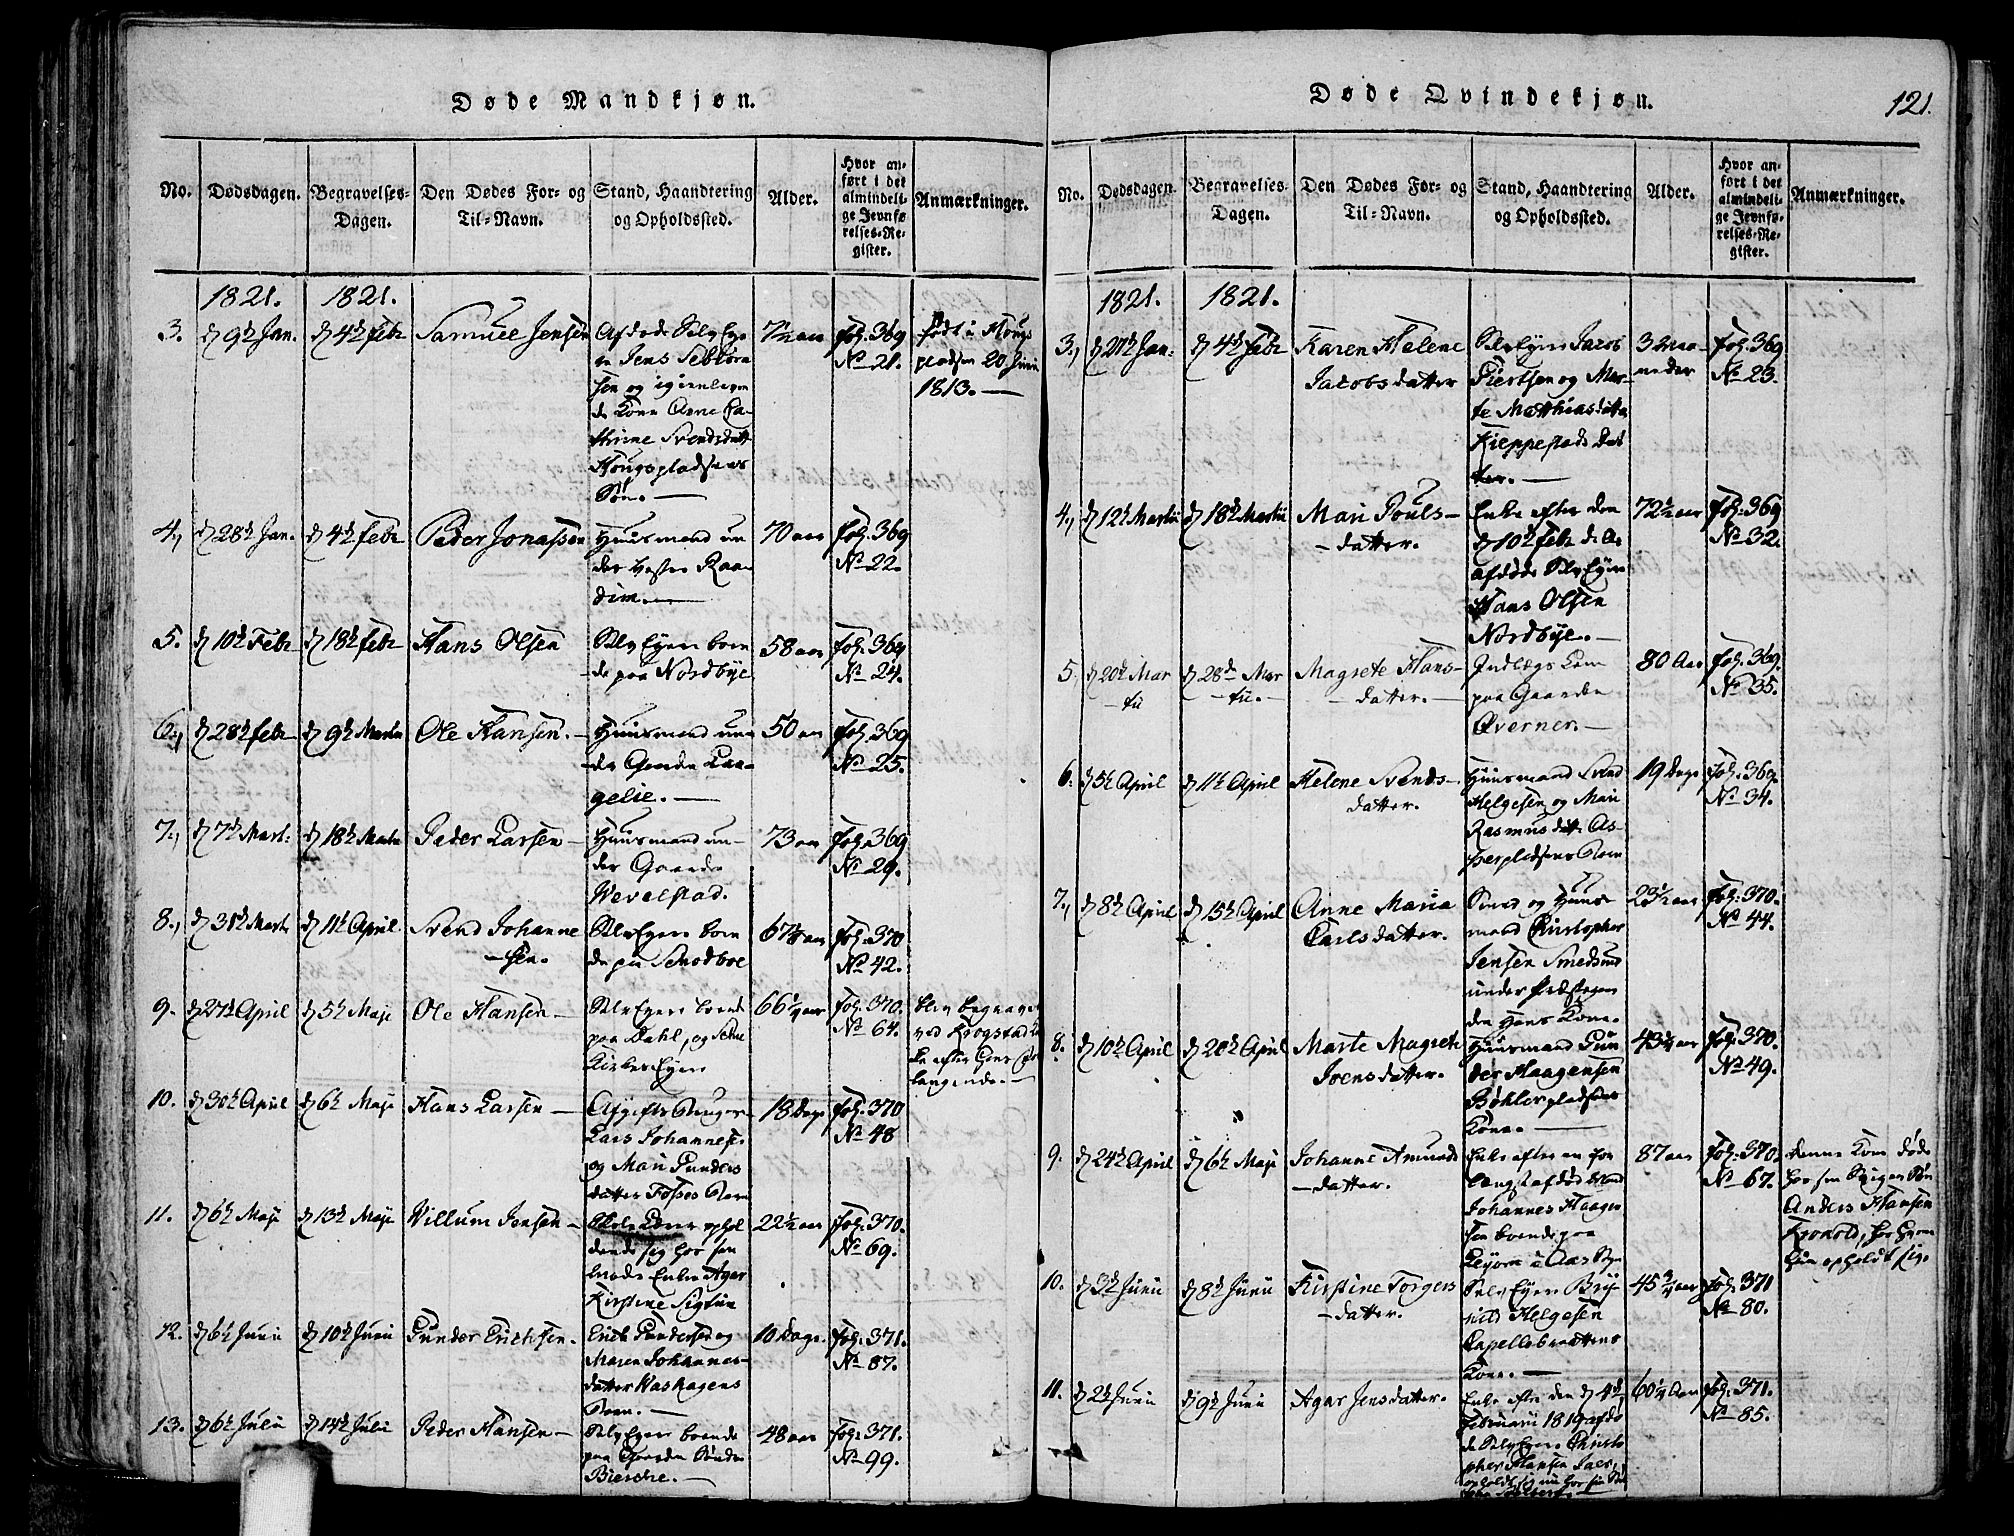 Døde Mandkjøn.
No.
Dødsdagen.
Begravelses-
Dagen.
Den Dødes For- og
Til-Navn.
Stand, Haandtering
og Opholdssted.
Alder.
Hvor an-
ført i det
almindeli-
ge Jevnfø-
relses-Re-
gister.
Anmærkninger.
1821.
1821.
3.
d 9d Jan.
d 4d Febr
Samuel Jensen
Afdøde Selv Eye
Jens
sen og igienleven
de Kone Anne Ca-
thrine Svendsdatt
Søn.
7½ aar
fol. 369
No 21.
født
pladsen 20 Juni
1813.
4.,
d 28d Jan.
d 4d Febr
Peder Jonassen
Huusmand un
der Vestre Raa
dim.
70 aar
fol. 369
No 22.
5.
d 10d Febr
d 18d Febr
Hans Olsen
Selv Eyer boen
de paa Nordbye
58 aar
fol. 369
No 24.
6.,
d 28d Febr
d 9d Martii
Ole Hansen.
Huusmand un
der Gaarden Lan
gelie.
50 aar
fol. 369
No 25.
7.,
d 7d Mart.
d 18d Martii
Peder Larsen
Huusmand un-
der Gaarden
Wevelstad.
73 aar
fol. 369
No 29.
8.,
d 31d Mart
d 11d April
Svend Johanne
sen.
Selv Eyer boen
de paa
aar
fol. 370
No 42.
9.
d 27d April
d 5d Maji
Ole Hansen
Selv Eyer boende
paa Dahl, og
Kirke Eyer
66¼ aar
fol. 370.
No 64.
blev begravet
ved
efter
langende.
10.
d 30d April
d 6d Maji
Hans Larsen
Afgifts Bruger
Lars Johannesen
og Mari Gunders
datter Fosses Barn
18 Dage
fol. 370
No 48
11.
d 6d Maji
d 13d Maji
Willum Jensen
Skole Lærer ophol
dende sig hos sin
Moder Enke Agar
Kirstine
22½ aar
fol. 370.
No 69.
12.
d 6d Junii
d 10d Junii
Gunder Erichsen.
Erich Gundersen og
Maren Johannes-
datter Washagens
Barn.
10 Dage.
fol. 371.
No 87.
13.
d 6d Julii
d 14d Julii
Peder Hansen
Selv Eyer boende
paa Gaarden Søndre
Biercke.
48 aar
fol. 371.
No 99.
Døde Qvindekjøn.
121.
No.
Dødsdagen.
Begravelses-
Dagen.
Den Dødes For- og
Til-Navn.
Stand, Haandtering
og Opholdssted.
Alder.
Hvor an-
ført i det
almindeli-
ge Jevnfø-
relses-Re-
gister.
Anmærkninger.
1821.
1821.
3.,
d 21d Jan:
d 4d Febr
Karen Helene
Jacobsdatter
Selv Eyer Jacob
og Mar-
te Matthiasdatter
Kieppestads Dat
ter.
3 Maa
neder
fol. 369
No 23.
4.,
d 12d Martii
d 18d Martii
Mari Pouls-
datter.
Enke efter den
d 10d Febr d. A.
afdøde Selv Eyer
Hans Olsen
Nordbye.
72½ aar
fol. 369
No 32.
5.
d 20d Mar
tii
d 28de Mar
tii.
Magrete Hans-
datter.
Indlægs Lem
paa Gaarden
Qverner.
80 Aar
fol. 369.
No 35.
6.
d 5d April
d 11d April
Helene Svends-
datter.
Huusmand Svend
Helgesen og Mari
Rasmusdatt. As-
perpladsens Barn
19 Dage
fol. 369.
No 34.
7.,
d 8d April
d 15d April
Anne Maria
Carlsdatter.
Smed og Huus
mand Christopher
Jensen
under Præstegaar
den Hans Kone.
23½ aar
fol. 370.
No 44.
8.
d 10d April
d 20d April
Marte Magrete
Ivensdatter.
Huusmand Gun
der Haagensen
Bøhlerpladsens
Kone.
43½ aar
fol. 370.
No 49.
9.
d 24d April
d 6d Maji
Johanne Amunds
datter.
Enke efter en for
længst afdød Mand
Johannes Haagen
sen boende paa
i Aas
87 aar
fol. 370.
No 67.
denne Kone døde
hos sin Søn
Anders Hansen
Krohold, hos hvem
hun opholdt sig.
10.
d 3d Junii
d 8d Junii
Kirstine Torgers
datter.
Selv Eyer Bry-
nild Helgesen
Capellebraattens
Kone.
45¾ aar
fol. 371
No 80.
11.
d 2d Junii
d 9d Junii
Agar Jensdatter.
Enke efter den d 4d
Februarii 1819 afdø
de Selv Eyer Christo
pher Hansen
opholdt sig nu hos sin
60¼ Aar
fol. 371.
No 85.